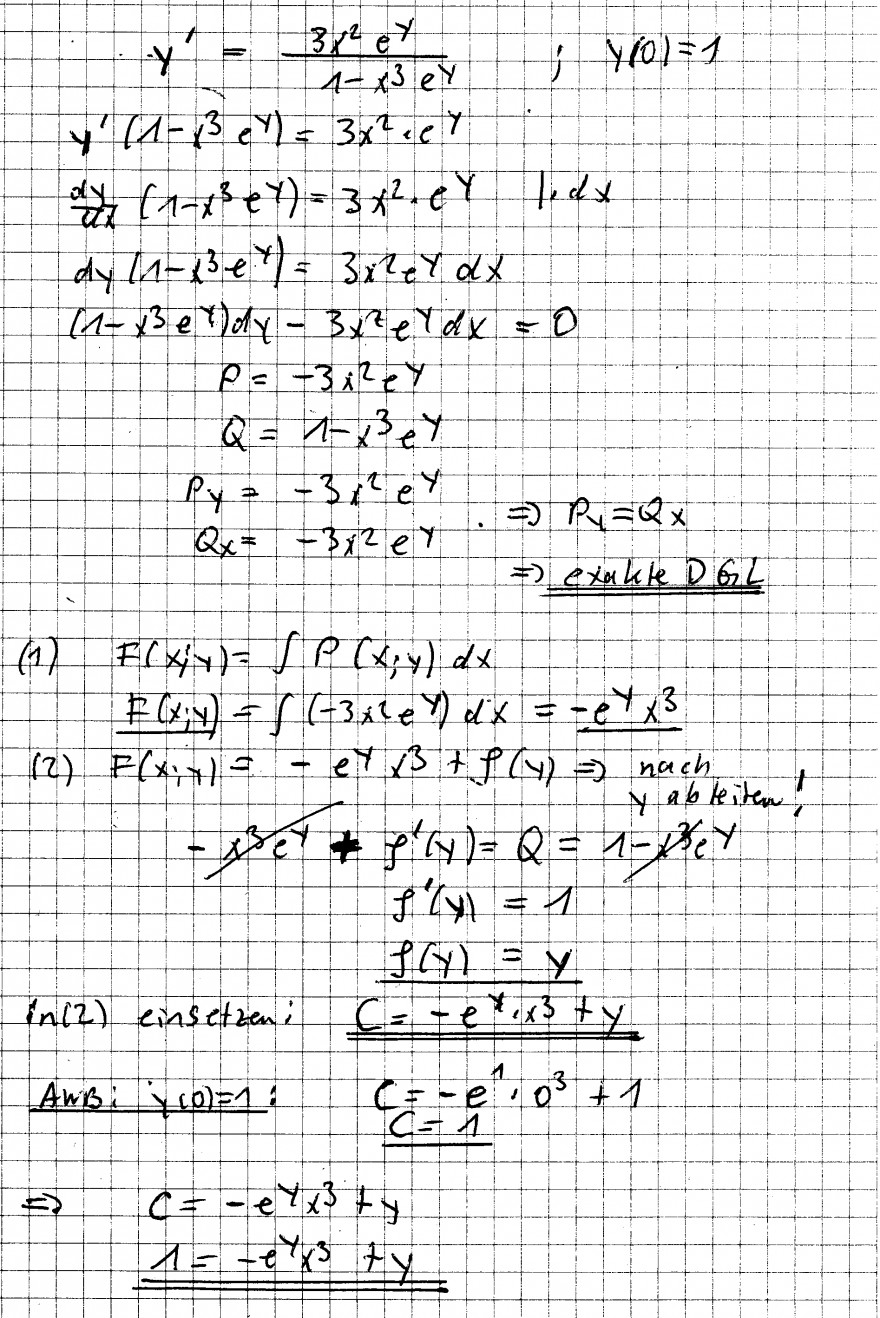 y' = \frac{3x² e^y}{1 - x³ e^y} ; y(0) = 1
y' (1 - x³ e^y) = 3x² · e^y
\frac{dy}{dx} (1 - x³ e^y) = 3x² · e^y |· dx
dy (1 - x³ e^y) = 3x² e^y dx
(1 - x³ e^y) dy - 3x² e^y dx = 0
P = -3x² e^y
Q = 1 - x³ e^y
P_y = -3x² e^y
⇒ P_y = Q_x
Q_x = -3x² e^y
⇒ exakte DGL
(1) F(x;y) = ∫ P(x;y) dx
F(x;y) = ∫ (-3x² e^y) dx = -e^y x³
(2) F(x;y) = - e^y x³ + f(y) ⇒ nach
y ableiten!
- x³ e^y + f'(y) = Q = 1 - x³ e^y
f'(y) = 1
f(y) = y
in (2) einsetzen: C = -e^y · x³ + y
AWB: y(0)=1: C = -e^1 · 0³ + 1
C = 1
⇒ C = -e^y x³ + y
1 = -e^y x³ + y